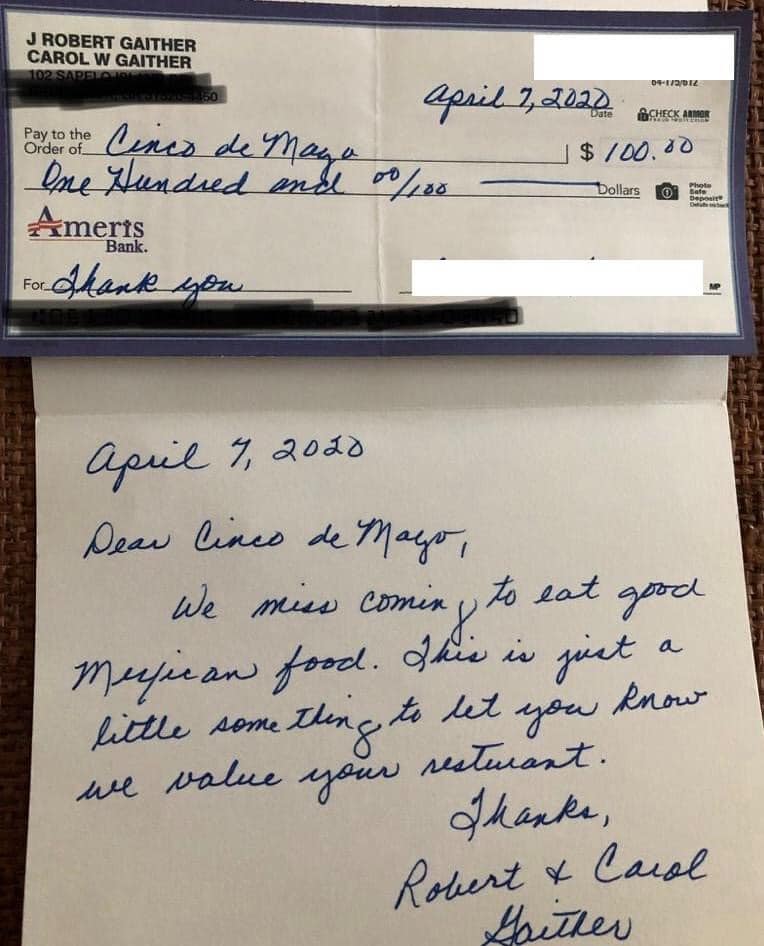 J ROBERT GAITHER
CAROL W GAITHER
April 7, 2020
Date
CHECK ARMOR
Pay to the
Order of Cinco de Mayo $ 100.00
One Hundred and 00/100 Dollars
Photo
Safe
Deposit
Ameris
Bank.
For Thank you
MP
April 7, 2020
Dear Cinco de Mayo,
We miss coming to eat good
Mexican food. This is just a
little something to let you know
we value your resturant.
Thanks,
Robert & Carol
Gaither